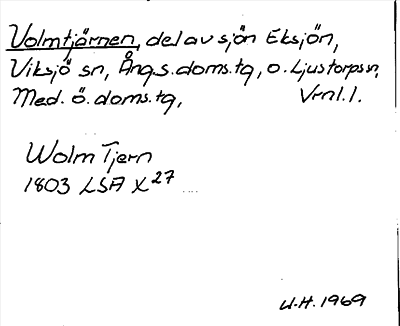 Volmtjärnen, del av sjön Eksjön,
Viksjö sn, Ång.s.doms.tg, o. Ljustorps sn,
Med. ö. doms.tg, Vrnl.l.
Wolm Tjern
1803 LSA X27
W.H. 1969